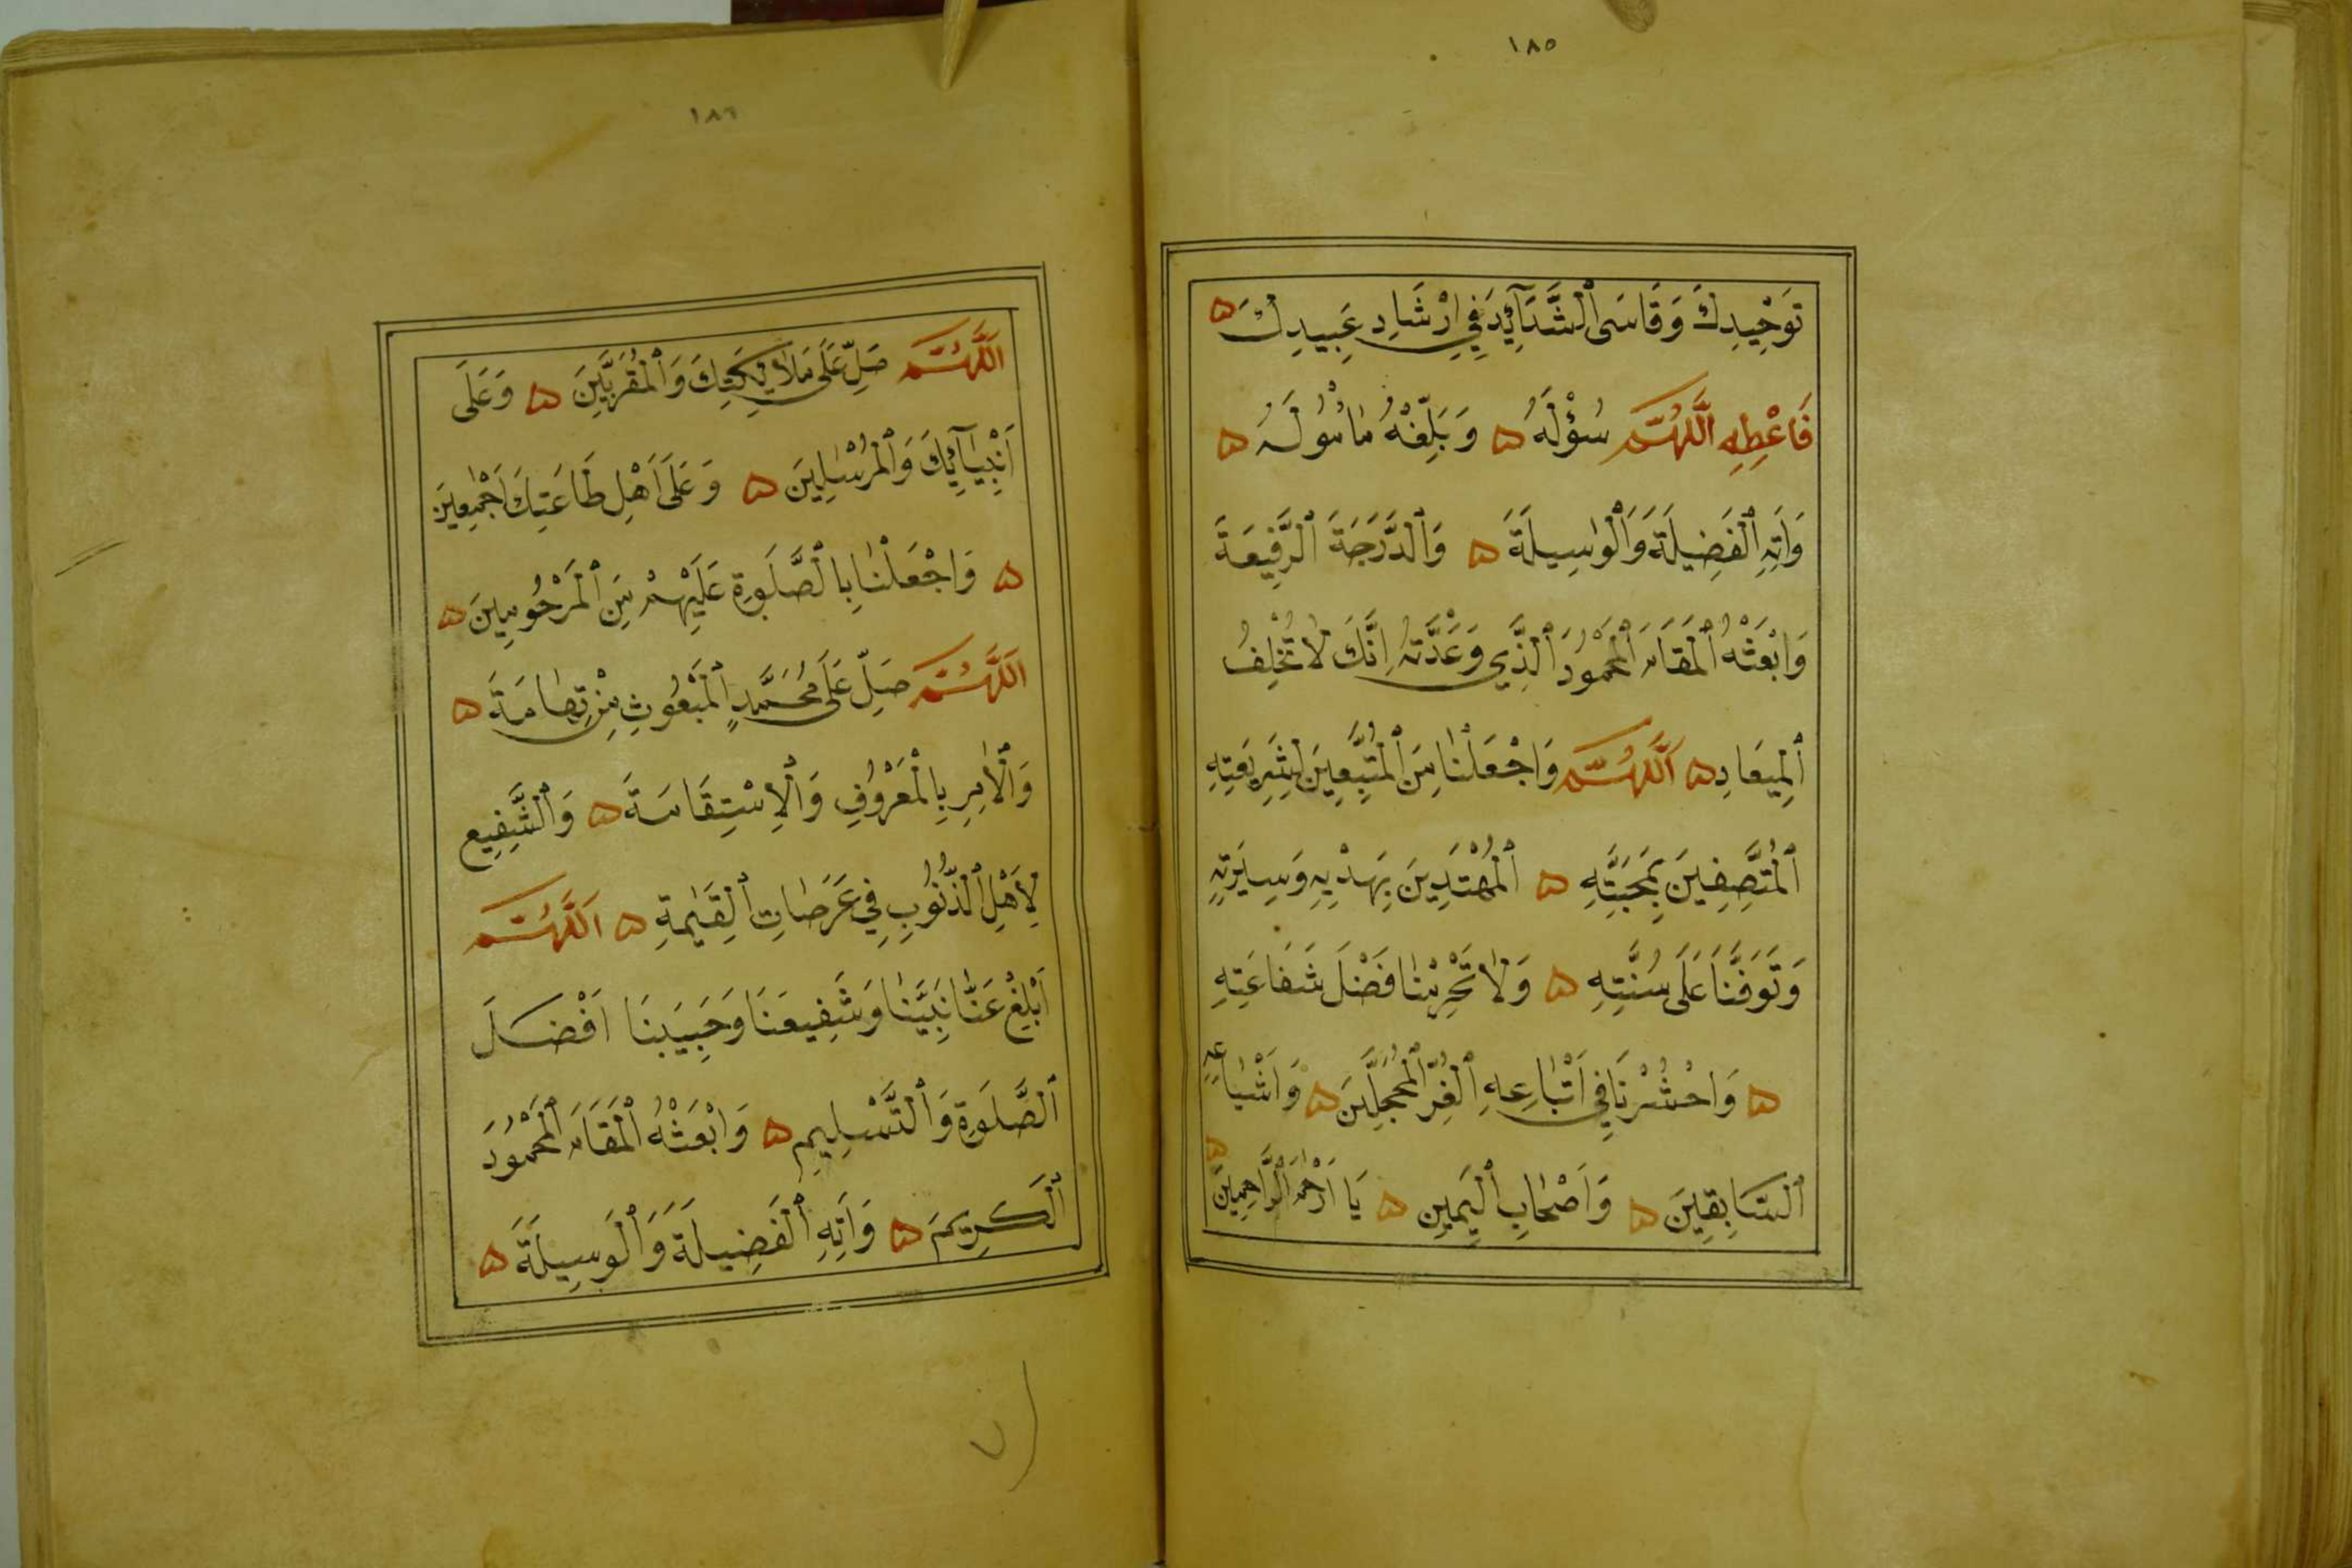 ١٨٥
تَوْحِيدِكَ وَقَاسَى ٱلشَّدَآئِدَ فِي اِرْشَادِ عَبِيدِكَ ه
فَاَعْطِهِ اَللّٰهُمَّ سُؤْلَهُ ه وَبَلِّغْهُ مَأْمُولَهُ ه
وَاٰتِهِ ٱلْفَضِيلَةَ وَٱلْوَاسِيلَةَ ه وَٱلدَّرَجَةَ ٱلرَّفِيعَةَ
وَابْعَثْهُ ٱلْمَقَامَ ٱلْمَحْمُودَ ٱلَّذِي وَعَدْتَهُ اِنَّكَ لَا تُخْلِفُ
ٱلْمِيعَادِ ه اَللّٰهُمَّ وَاجْعَلْنَا مِنَ ٱلْمُتَّبِعِينَ لِشَرِيعَتِهِ
ٱلْمُتَّصِفِينَ بِمَحَبَّتِهِ ه ٱلْمُهْتَدِينَ بِهَدْيِهِ وَسِيرَتِهِ
وَتَوَفَّنَا عَلَى سُنَّتِهِ ه وَلَا تَحْرِمْنَا فَضْلَ شَفَاعَتِهِ
ه وَاحْشُرْنَا فِي اَتْبَاعِهِ ٱلْغُرِّ ٱلْمُحَجَّلِينَ ه وَاَشْيَاعِهِ
ٱلسَّابِقِينَ ه وَاَصْحَابِ ٱلْيَمِينِ ه يَا اَرْحَمَ ٱلرَّاحِمِينَ ه
١٨٦
اَللّٰهُمَّ صَلِّ عَلَى مَلَائِكَتِكَ وَٱلْمُقَرَّبِينَ ه وَعَلَى
اَنْبِيَآئِكَ وَٱلْمُرْسَلِينَ ه وَعَلَى اَهْلِ طَاعَتِكَ اَجْمَعِينَ
ه وَاجْعَلْنَا بِالصَّلَوةِ عَلَيْهِمْ مِنَ ٱلْمَرْحُومِينَ ه
اَللّٰهُمَّ صَلِّ عَلَى مُحَمَّدٍ ٱلْمَبْعُوثِ مِنْ تِهَامَةَ ه
وَٱلْاٰمِرِ بِالْمَعْرُوفِ وَٱلْاِسْتِقَامَةَ ه وَٱلشَّفِيعِ
لِاَهْلِ ٱلذُّنُوبِ فِي عَرَصَاتِ ٱلْقِيٰمَةِ ه اَللّٰهُمَّ
اَبْلِغْ عَنَّا نَبِيَّنَا وَشَفِيعَنَا وَحَبِيبَنَا اَفْضَلَ
ٱلصَّلَوةِ وَٱلتَّسْلِيمِ ه وَابْعَثْهُ ٱلْمَقَامَ ٱلْمَحْمُودَ
ٱلْكَرِيمَ ه وَاٰتِهِ ٱلْفَضِيلَةَ وَٱلْوَسِيلَةَ ه